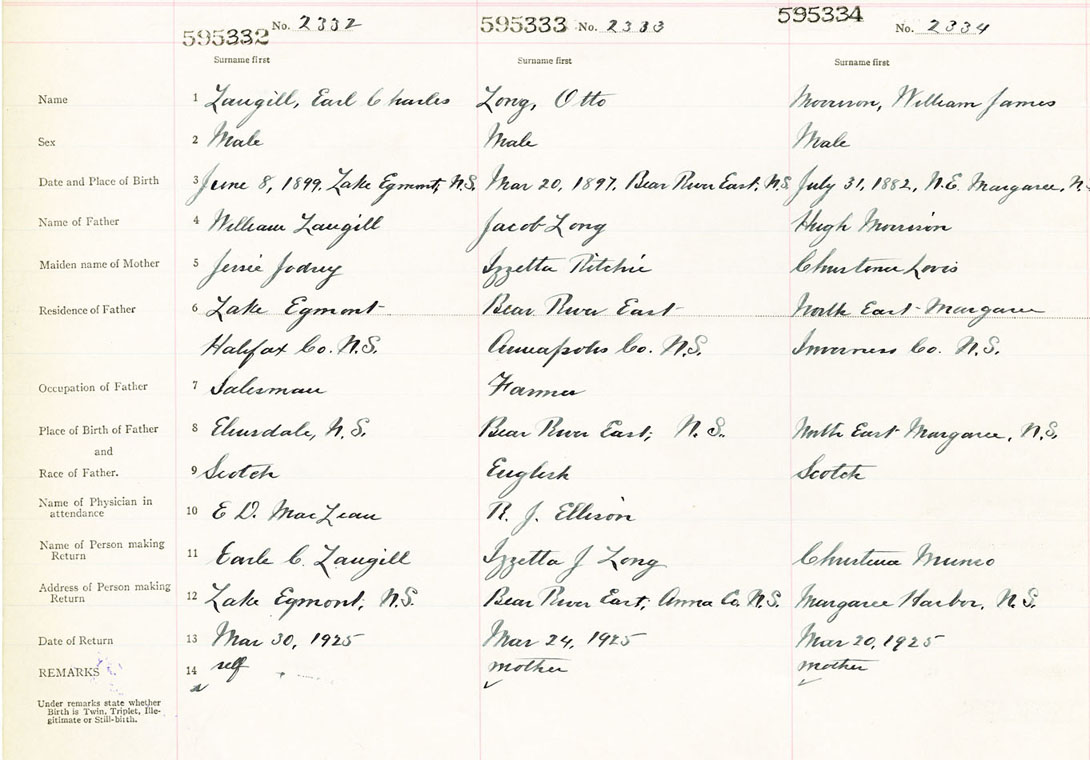 595332 No. 2332 595333 No. 2333 595334 No. 2334
Surname first Surname first Surname first
Name 1 Langill, Earl Charles Long, Otto Morrison, William James
Sex 2 Male Male Male
Date and Place of Birth 3 June 8, 1899, Lake Egmont, N.S. Mar 20, 1897, Bear River East, N.S. July 31, 1882, N.E. Margaree, N.
Name of Father 4 William Langill Jacob Long Hugh Morrison
Maiden name of Mother 5 Jessie Jodrey Izzetta Ritchie Christena
Residence of Father 6 Lake Egmont Bear River East North East Margaree
Halifax Co. N.S. Annapolis Co. N.S. Inverness Co. N.S.
Occupation of Father 7 Salesman Farmer
Place of Birth of Father 8 Elmsdale, N.S. Bear River East, N.S. North East Margaree, N.S.
and
Race of Father. 9 Scotch English Scotch
Name of Physician in
attendance 10 E D. MacLean R. J. Ellison
Name of Person making
Return 11 Earle C. Langill Izzetta J Long Christena Munro
Address of Person making
Return 12 Lake Egmont, N.S. Bear River East, Anna Co. N.S. Margaree Harbor, N.S.
Date of Return 13 Mar 30, 1925 Mar 24, 1925 Mar 20, 1925
REMARKS 14 self mother mother
Under remarks state whether
Birth is Twin, Triplet, Ille-
gitimate or Still-birth.